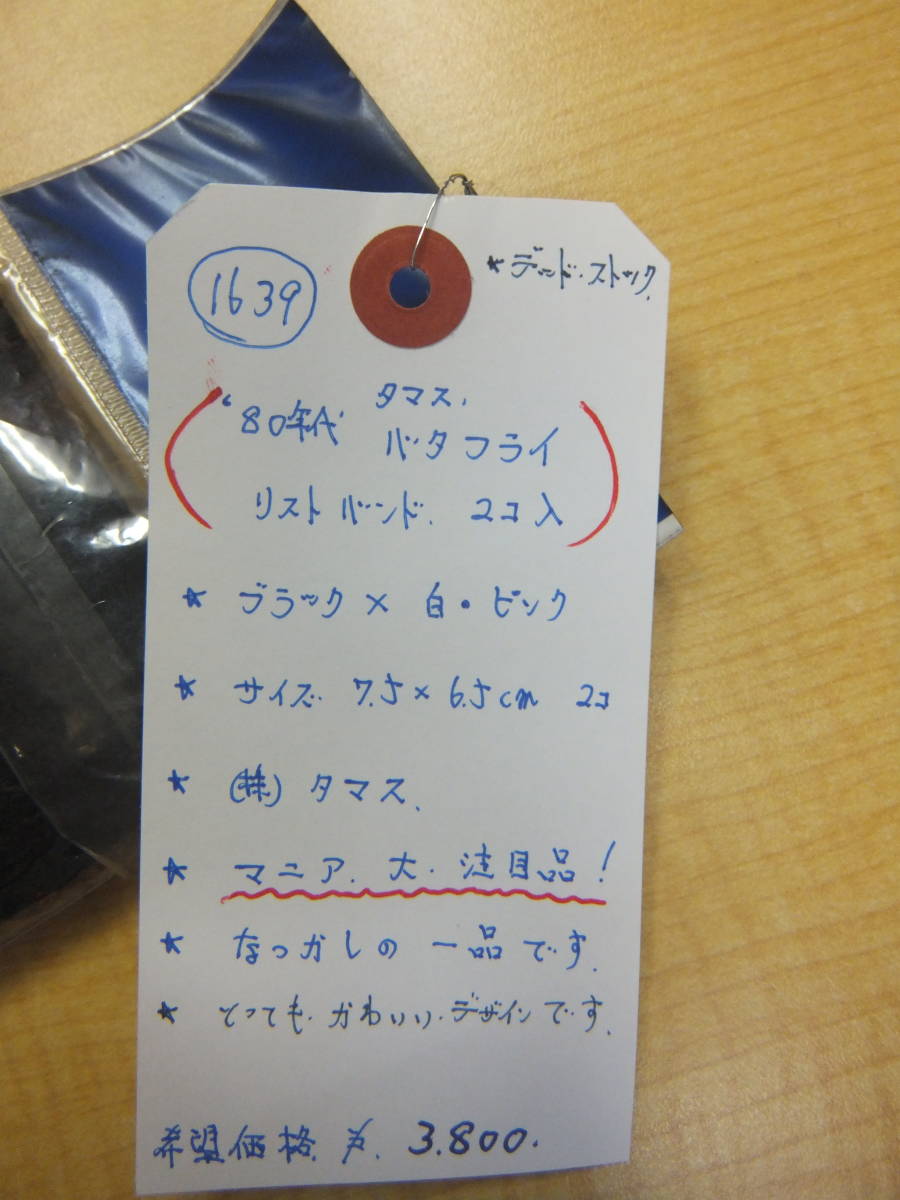 1639
★デッド・ストック.
'80年代 タマス.
バタフライ
リストバンド. 2コ入
★ ブラック × 白・ピンク
★ サイズ. 7.5×6.5cm 2コ
★ (株)タマス.
★ マニア. 大. 注目品!
★ なつかしの 一品です.
★ とっても.かわいい.デザインです.
希望価格. ¥. 3.800.